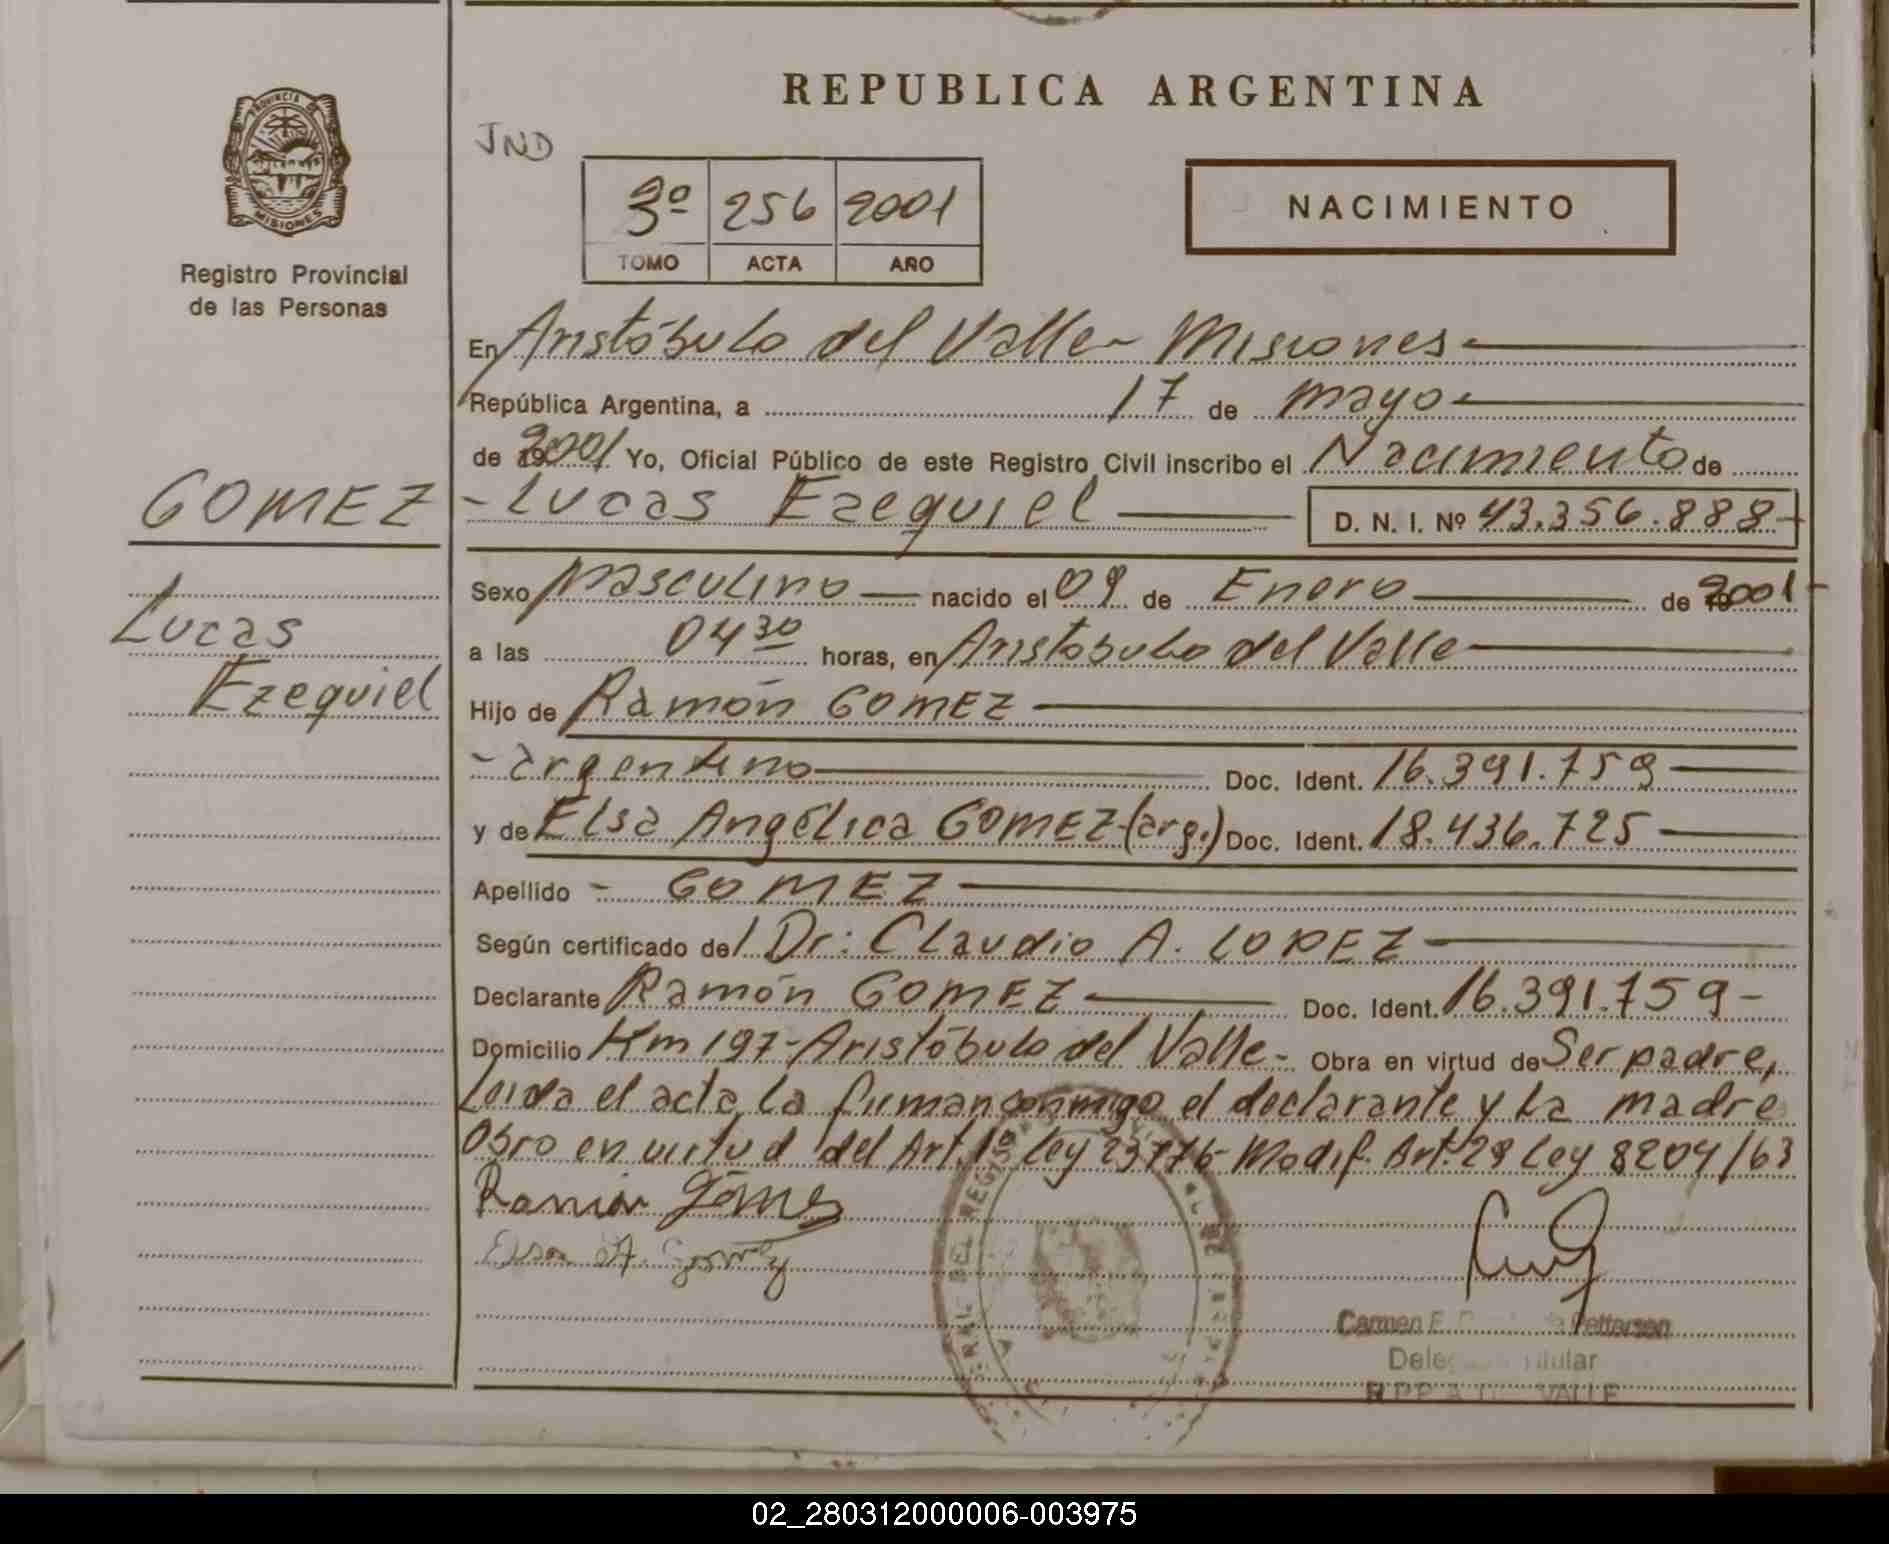 REPUBLICA ARGENTINA
PROVINCIA DE
MISIONES
Registro Provincial
de las Personas
JND
3º 256 2001
TOMO ACTA AÑO
NACIMIENTO
En Aristóbulo del Valle - Misiones
República Argentina, a 17 de mayo
de 2001 Yo, Oficial Público de este Registro Civil inscribo el Nacimiento de
GOMEZ
- Lucas Ezequiel D. N. I. Nº 43.356.888
Lucas
Ezequiel
Sexo masculino nacido el 09 de Enero de 2001
a las 04 30 horas, en Aristóbulo del Valle
Hijo de Ramón GOMEZ
- argentino Doc. Ident. 16.391.759
y de Elsa Angélica GOMEZ (arg.) Doc. Ident. 18.436.725
Apellido - GOMEZ
Según certificado del Dr: Claudio A. LOPEZ
Declarante Ramón GOMEZ Doc. Ident. 16.391.759 -
Domicilio Km 197 - Aristóbulo del Valle - Obra en virtud de Ser padre,
Leida el acta, la firman conmigo el declarante y la madre
Obro en virtud del Art. 1º Ley 23776 - Modif. Art. 28 Ley 8204/63
Ramón Gómez
Elsa A. Gomez
Carmen E. Petterson
Titular
VALLE
02_280312000006-003975